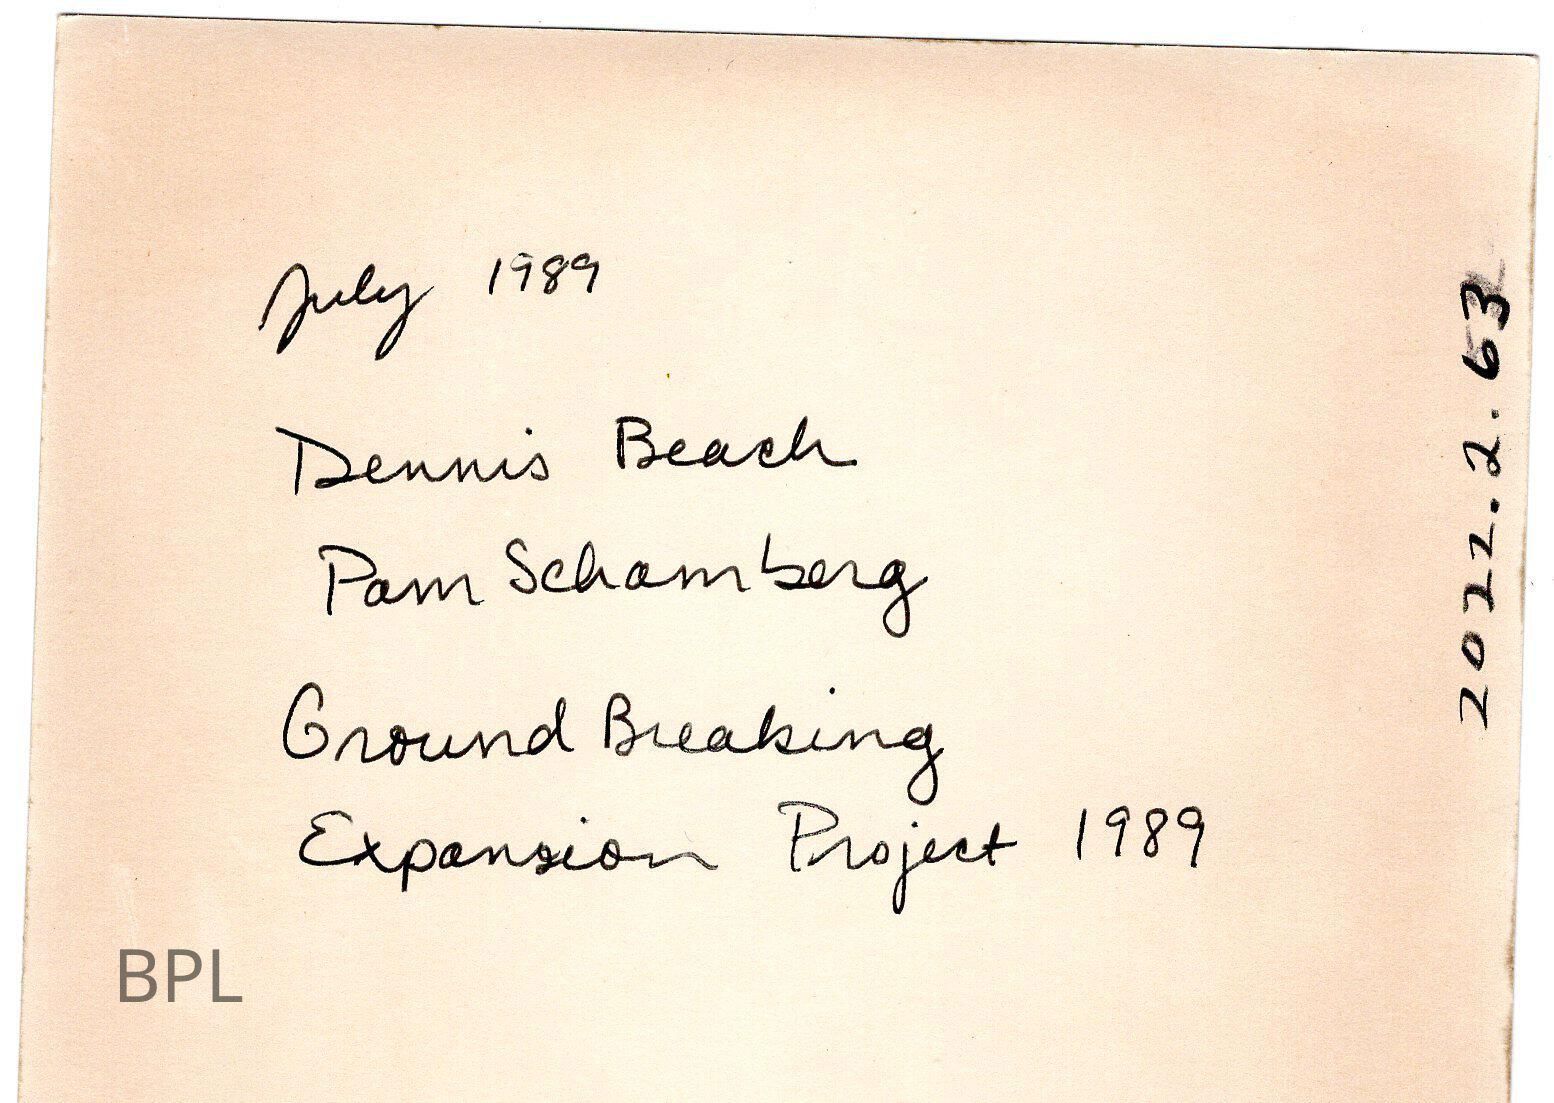 July 1989
Dennis Beach
Pam Schamberg
Ground Breaking
Expansion Project 1989
2022.2.63
BPL